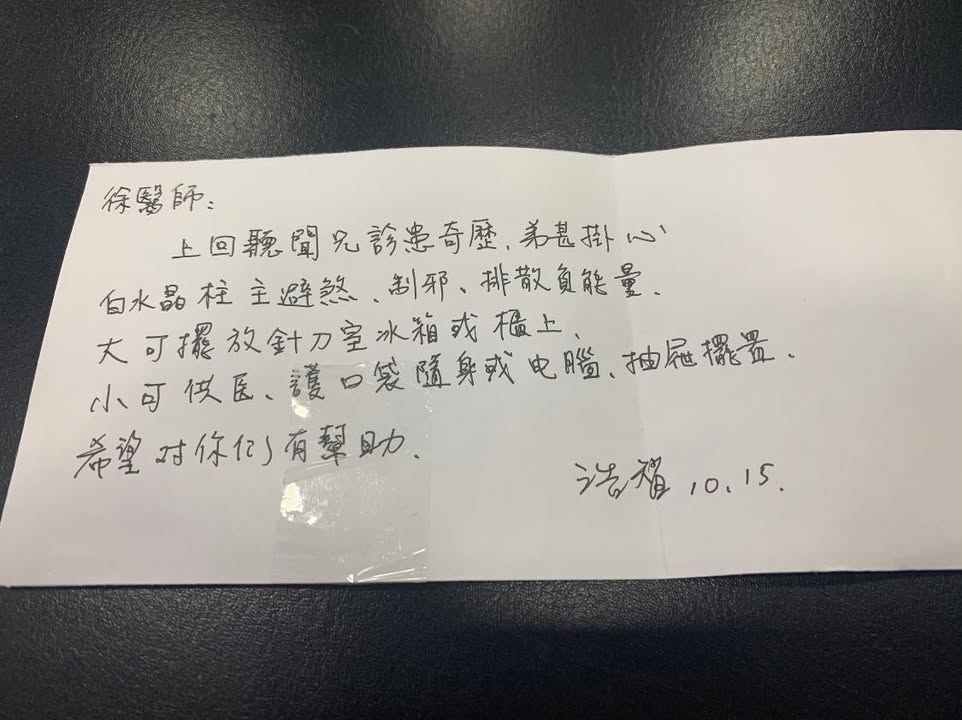 徐醫師:
上回聽聞兄診患奇歷、弟甚掛心
白水晶柱主避煞、制邪、排散負能量.
大可擺放針刀室冰箱或櫃上、
小可供医、護口袋隨身或电腦、抽屜擺置.
希望对你们有幫助.
浩 10.15.